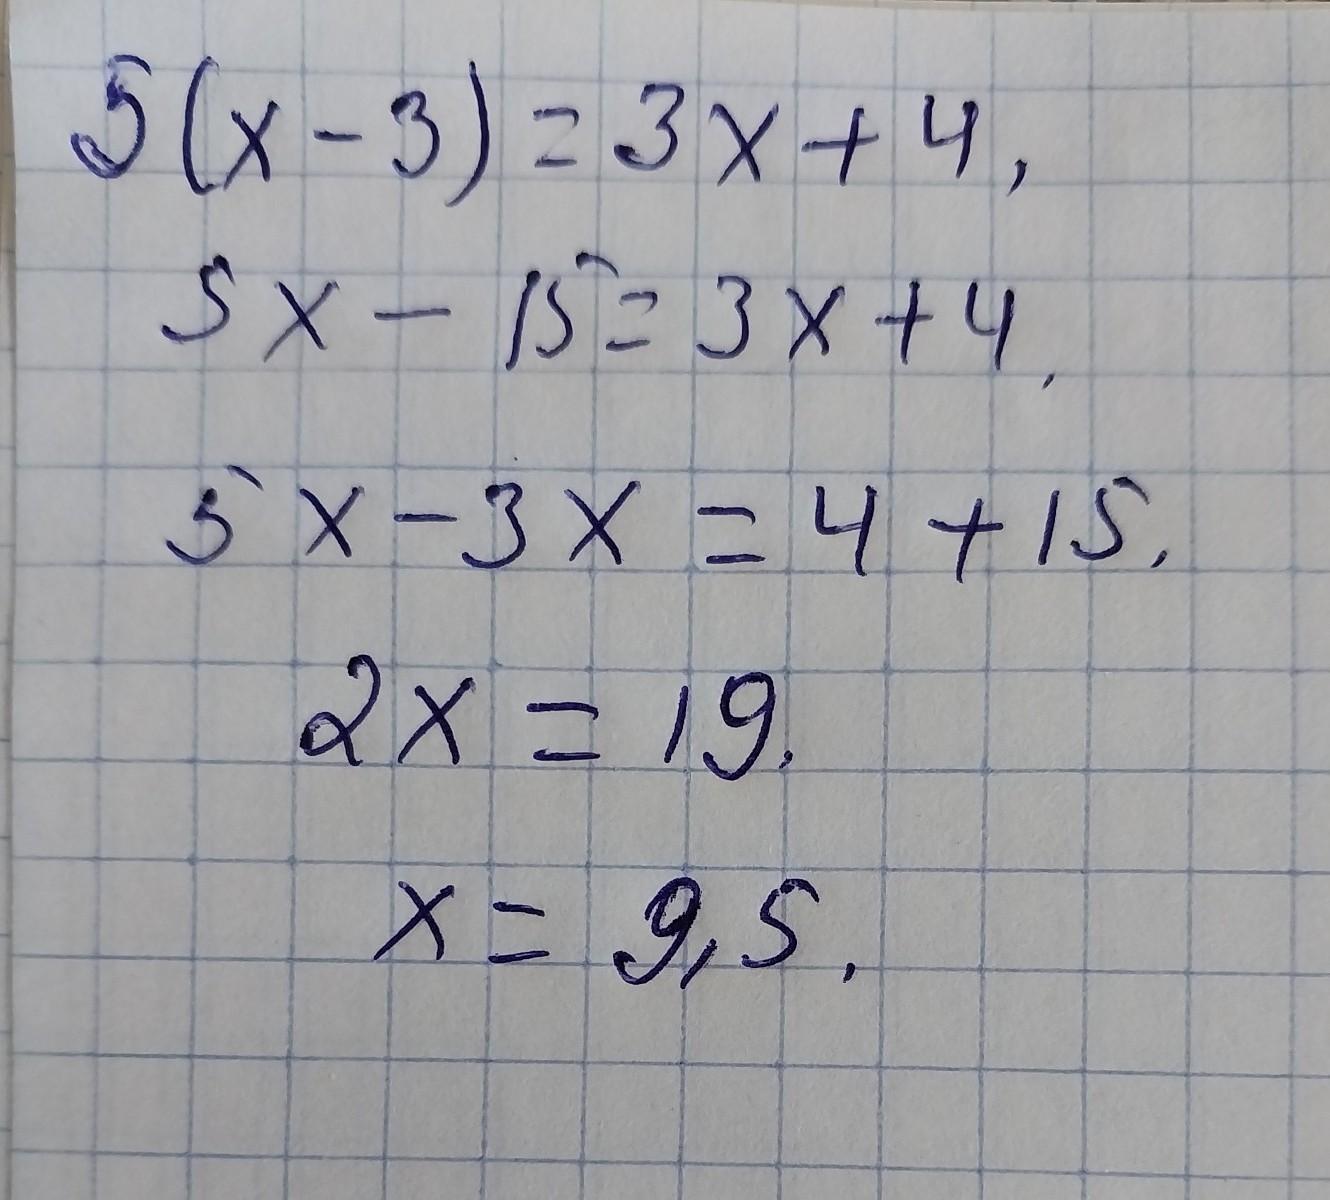 5(x-3)=3x+4,
5x-15=3x+4,
5x-3x=4+15,
2x=19,
x=9,5,